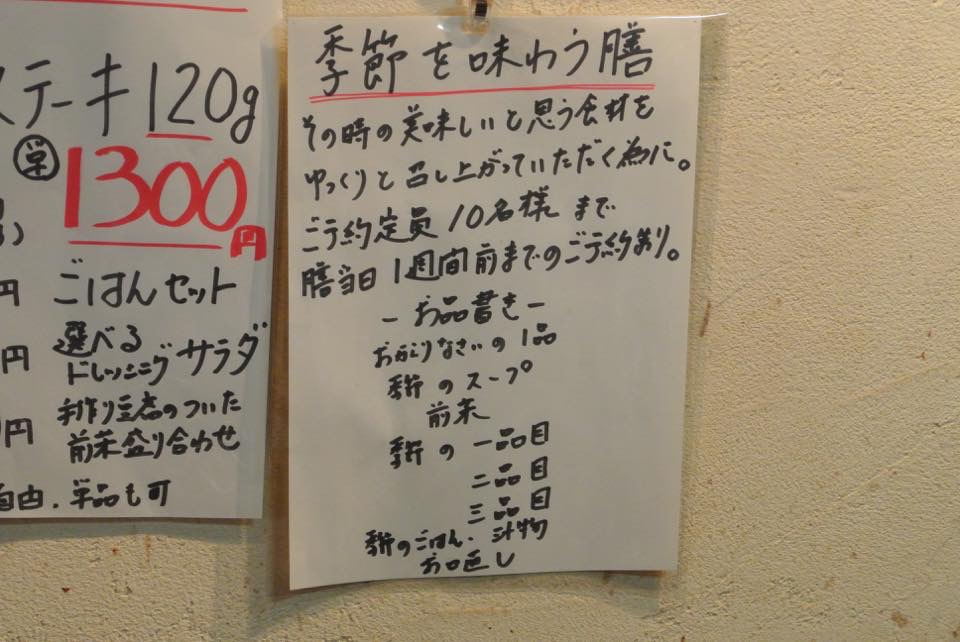 ステーキ 120g
単 1300円
円 ごはんセット
円 選べる
ドレッシング サラダ
円 手作り豆腐のついた
前菜盛り合わせ
自由.単品も可
季節を味わう膳
その時の美味しいと思う食材を
ゆっくりと召し上がっていただく為に。
ご予約定員 10名様 まで
膳当日 1週間前までのご予約あり。
- お品書き -
おかえりなさいの1品
季節のスープ
前菜
季節の 一品目
二品目
三品目
季節のごはん. 汁物
お口直し